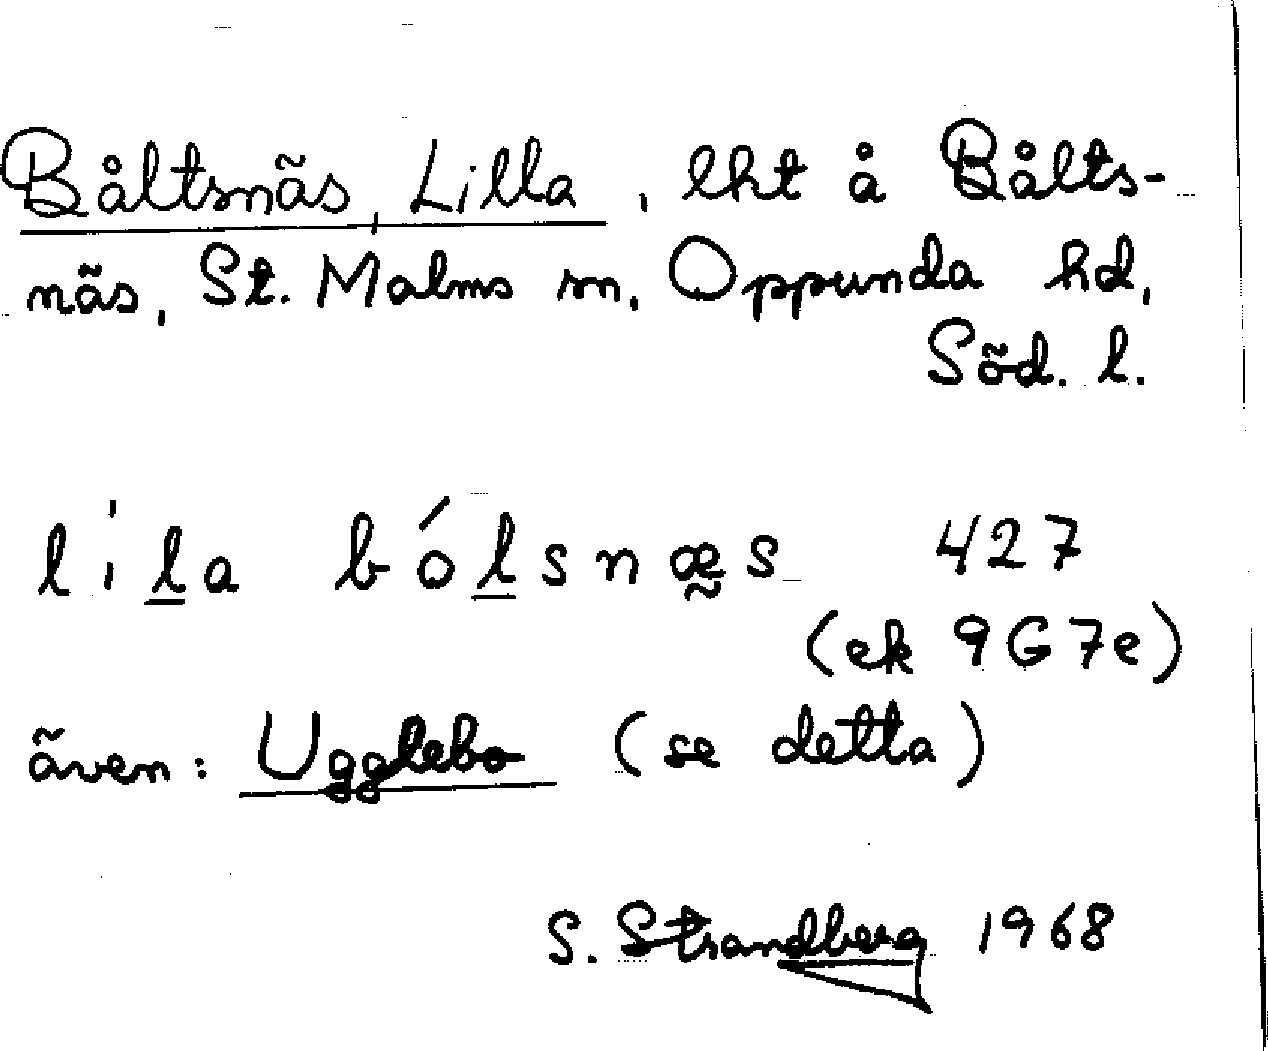 Båltsnäs, Lilla, lht å Bålts-
näs, St. Malms sn, Oppunda hd,
Söd. l.
li̍l̲a ból̲snæ̰s 427
(ek 9G7e)
även: Ugglebo (se detta)
S. Strandberg 1968